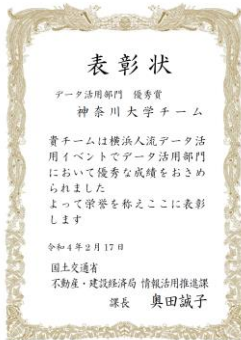 表彰状
データ活用部門 優秀賞
神奈川大学チーム
貴チームは横浜人流データ活
用イベントでデータ活用部門
において優秀な成績をおさめ
られました
よって栄誉を称えここに表彰
します
令和4年2月17日
国土交通省
不動産・建設経済局 情報活用推進課
課長 奥田誠子